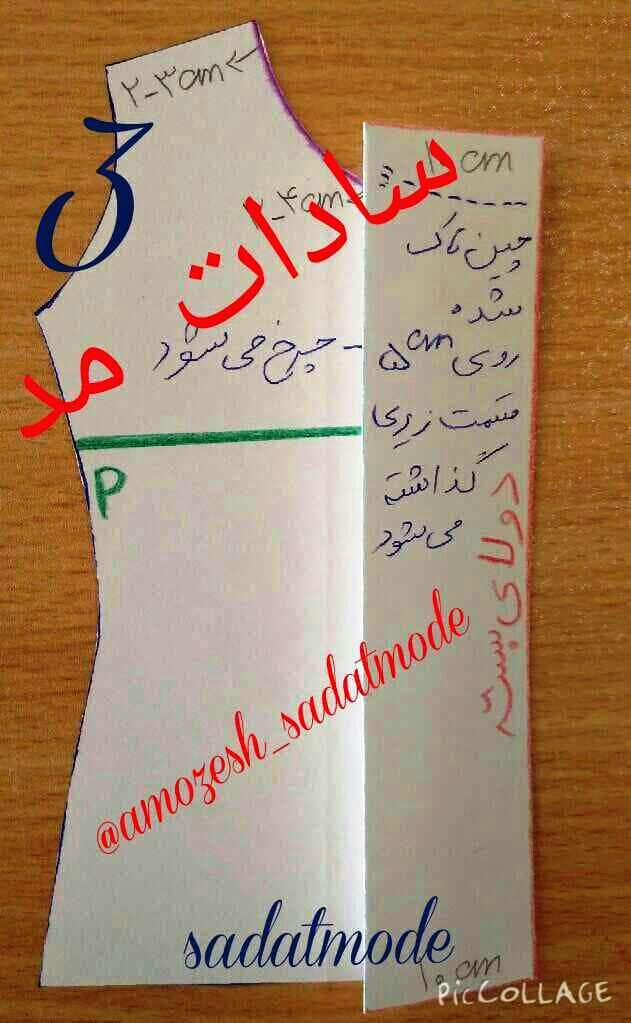 ۲-۳cm ←
3
۱۰cm
۲-۴cm
سادات مد
چین تاک
شده
روی ۵cm - چرخ می شود
قسمت زیری
گذاشته
می شود
دولای بسته
P
@amozesh_sadatmode
sadatmode
۱۰cm
PicCOLLAGE